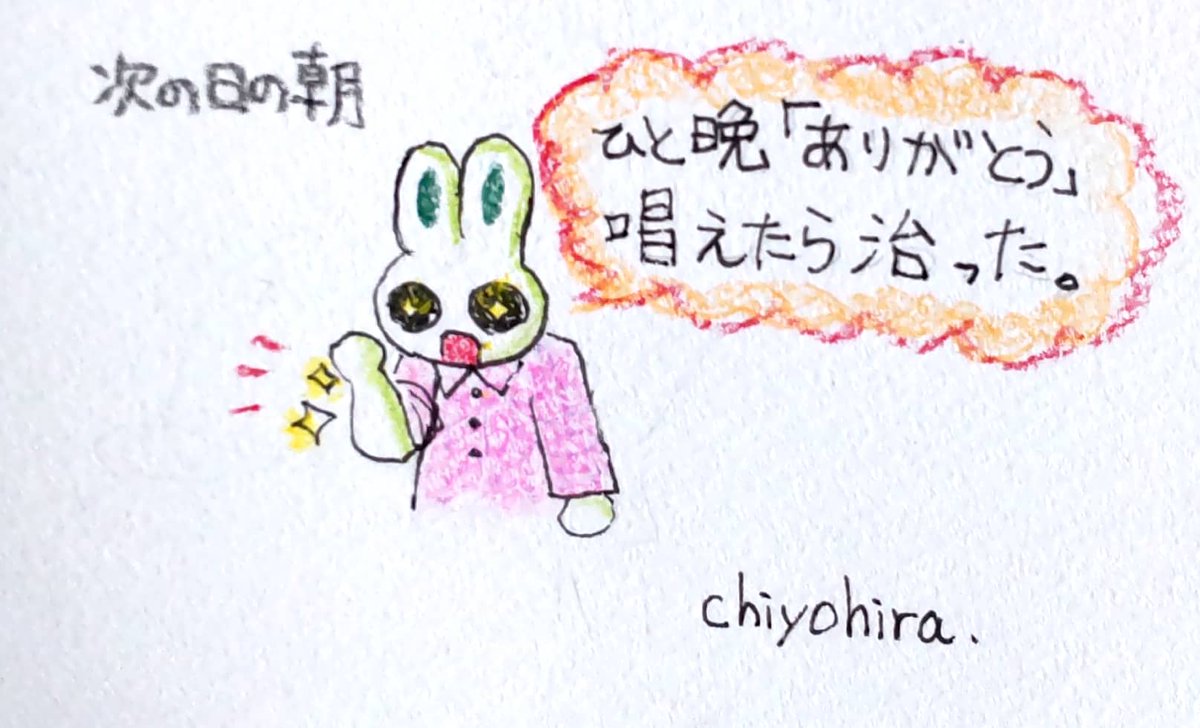 次の日の朝
ひと晩「ありがとう」
唱えたら治った。
chiyohira.